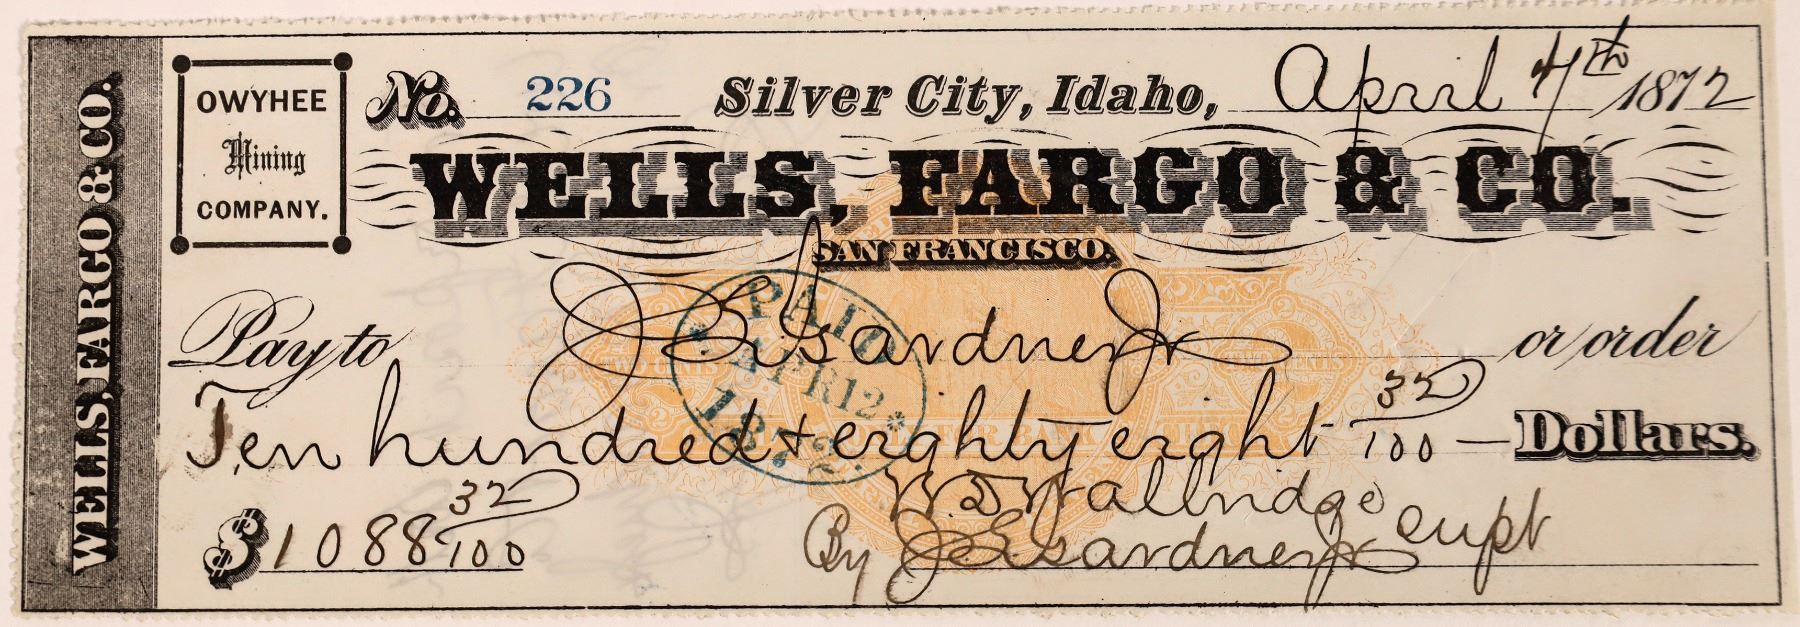 WELLS, FARGO & CO.
OWYHEE
Mining
COMPANY.
No. 226 Silver City, Idaho, April 4th 1872
WELLS, FARGO & CO.
SAN FRANCISCO.
Pay to J E Gardner Jr or order
Ten hundred & eighty eight 32/100 — Dollars.
$1088 32/100
W. D. Wallbridge supt
By J E Gardner Jr
PAID
APR 12
1872
TWO CENTS
TWO CENTS